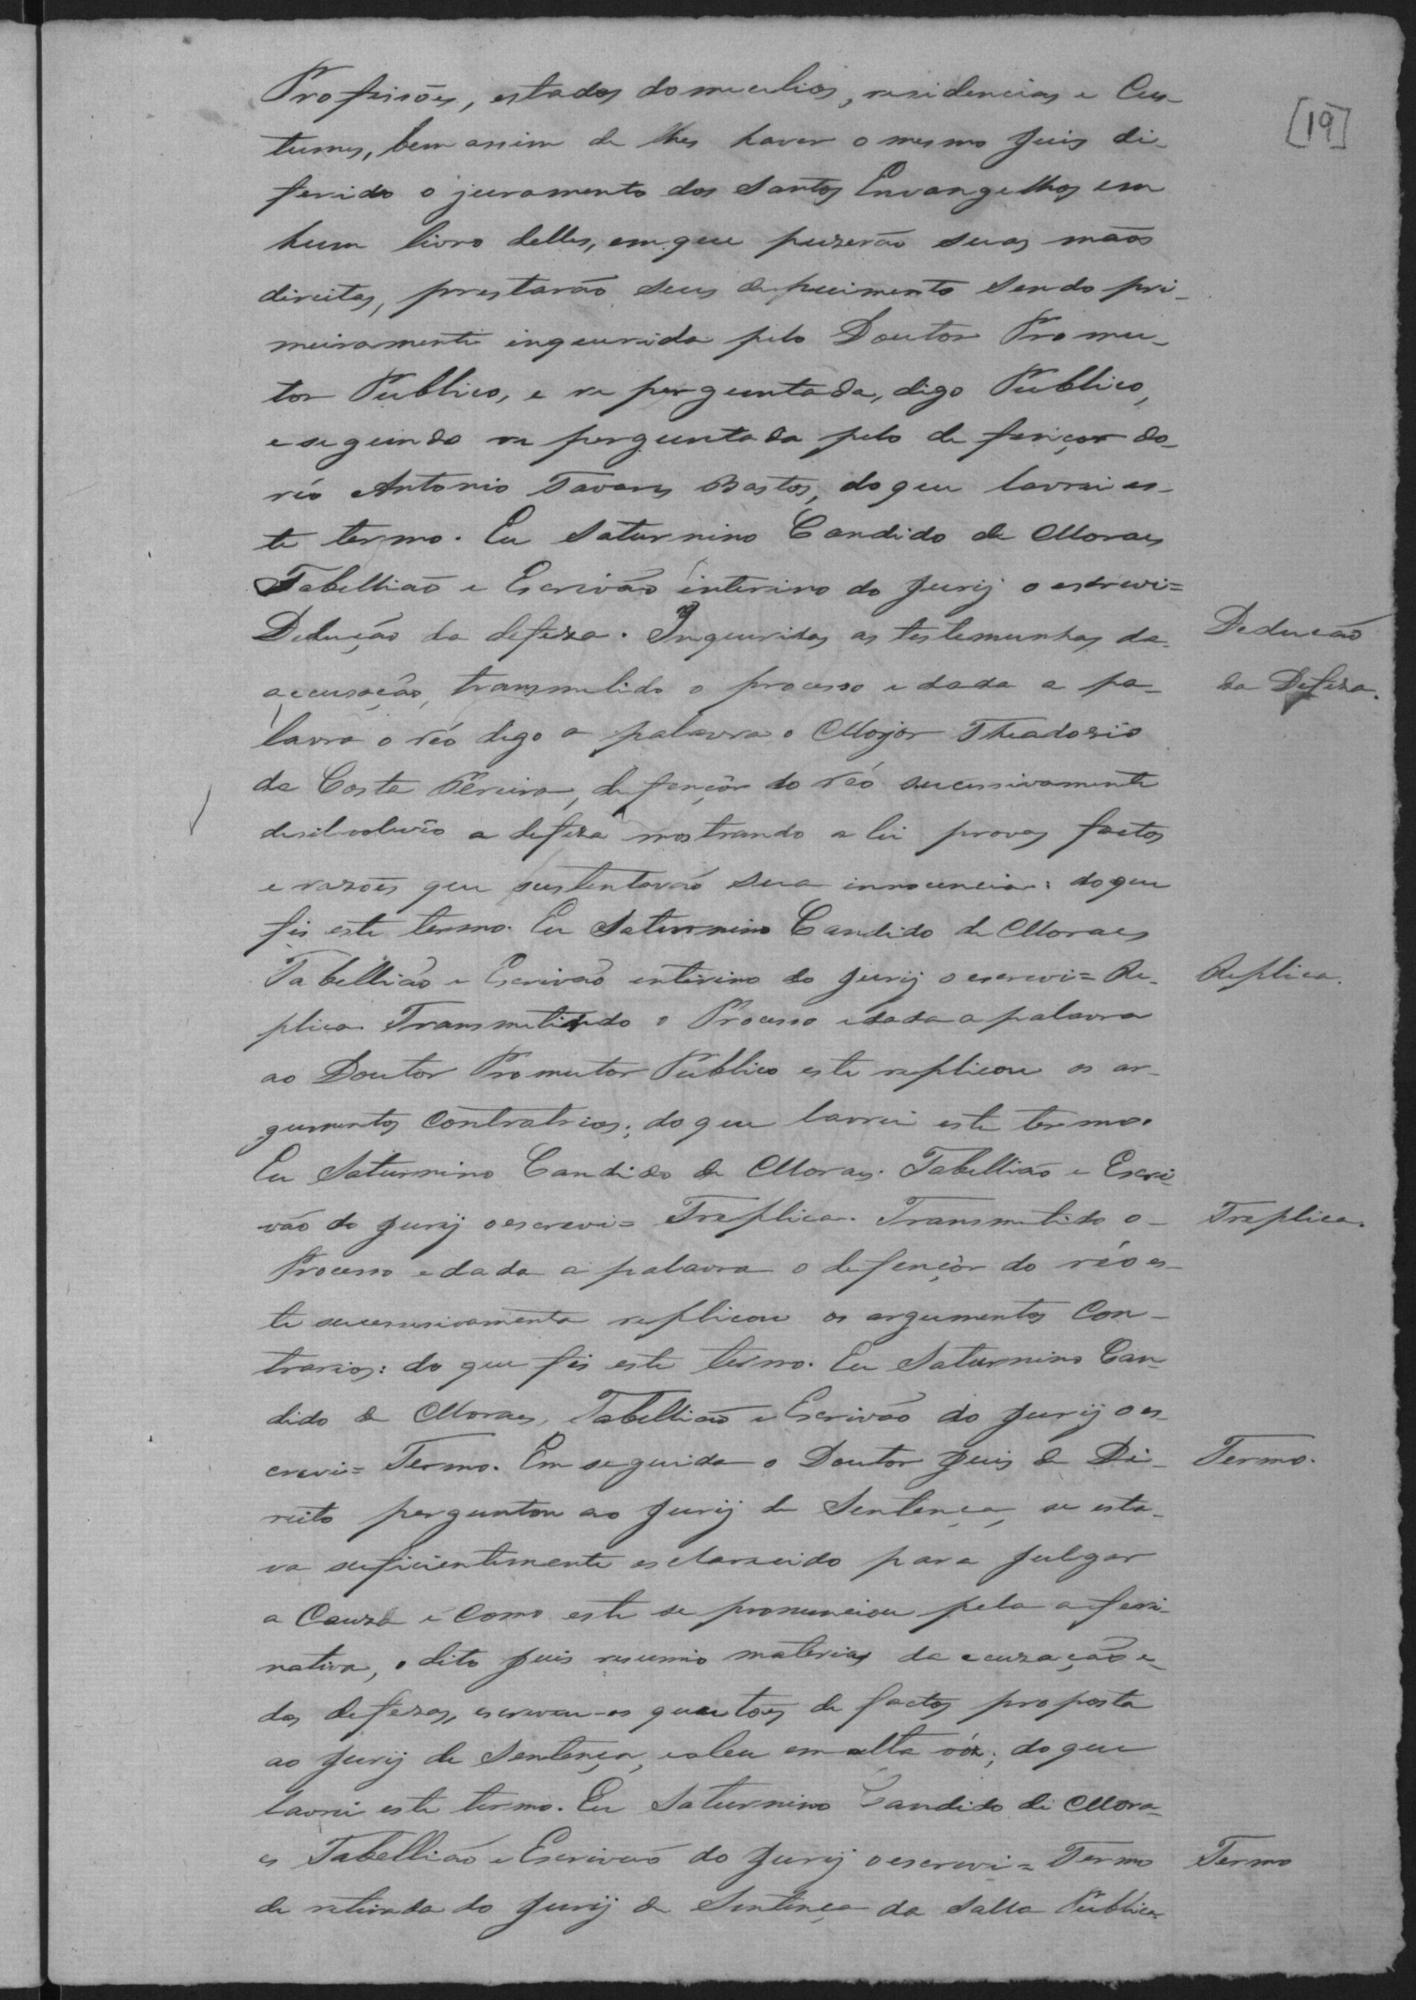 [19]
Profisões, estados domicilios, residencias e Cus-
tumes, bem assim de lhes haver o mesmo Juis di-
ferido o juramento dos Santos Envangelhos em
hum livro delles, em que puzerão suas mãos
direitas, prestarão seus depuimento sendo pri-
meiramente inquirida pelo Doutor Promu-
tor Publico, e re perguntada, digo Publico,
e seguindo re perguntada pelo defençor do
réo Antonio Tavares Bastos, do que lavrei es-
te termo. Eu Saturnino Candido de Moraes
Tabellião e Escrivão interino do Jury o escrevi=
Dedução da defeza. Inqueridas as testemunhas da
accusação, transmetido o processo e dada a pa-
lavra o réo digo a palavra o Major Theadosio
da Costa Pereira, defençôr do réo sucessivamente
desilvolveo a defeza mostrando a lei provas factos
e razões que sustentavão sua innocencia: do que
fis este termo. Eu Saturnino Candido de Moraes
Tabellião e Escrivão interino do Jury o escrevi= Re-
plica. Transmetindo o Processo e dada a palavra
ao Doutor Promutor Publico este replicou os ar-
gumentos contratrios; do que lavrei este termo.
Eu Saturnino Candido de Moraes. Tabellião e Escri-
vão do Jury o escrevi= Treplica. Transmetido o
Processo e dada a palavra o defençôr do réo es-
te sucessivamente replicou os argumentos Con-
trarios: do que fis este termo. Eu Saturnino Can-
dido de Moraes, Tabellião e Escrivão do Jury o es-
crevi= Termo. Em seguida o Doutor Juis de Di-
reito perguntou ao Jury de Sentença, se esta-
va suficientemente esclarecido para julgar
a Cauza e como este se pronunciou pela afferi-
nativa, o dito Juis resumio materias da acuzação e
das defezas, escreveu os questões de factos proposta
ao Jury de Sentença, e aleu em alta vóz; do que
lavrei este termo. Eu Saturnino Candido de Mora-
es Tabellião e Escrivão do Jury o escrevi= Termo
de retirada do Jury de Sentença da Salla Publica
Dedução
da Defeza.
Replica.
Treplica.
Termo.
Termo